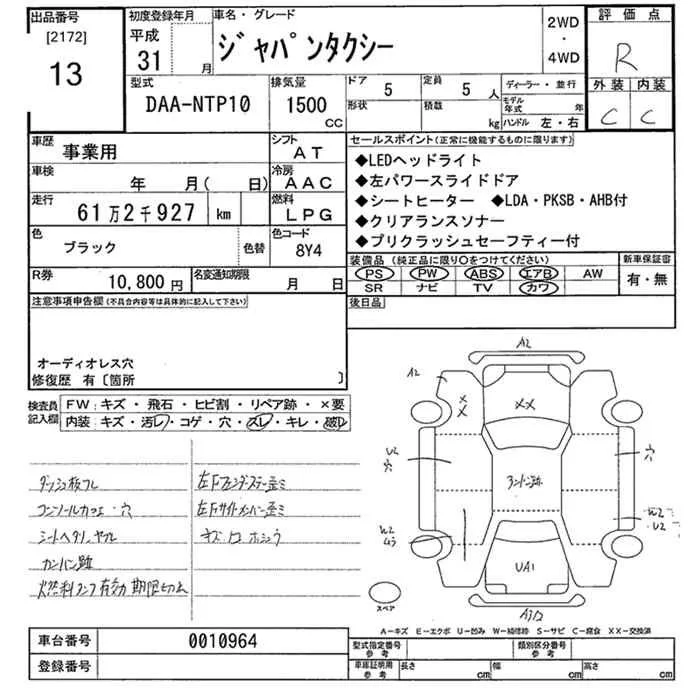 出品番号
[2172]
13
初度登録年月
平成
31 月
車名・グレード
ジャパンタクシー
2WD
・
4WD
評価点
R
外装 内装
C C
型式
DAA-NTP10
排気量
1500
CC
ドア 5
定員 5 人
形状
積載 kg
ディーラー・並行
モデル年式 年
ハンドル 左・右
車歴 事業用
シフト AT
車検 年 月( 日)
冷房 AAC
走行 61万2千927 km
燃料 LPG
色 ブラック 色替
色コード 8Y4
R券 10,800円
名変通知期限 月 日
セールスポイント(正常に機能するものに限ります)
◆LEDヘッドライト
◆左パワースライドドア
◆シートヒーター ◆LDA・PKSB・AHB付
◆クリアランスソナー
◆プリクラッシュセーフティー付
装備品 (純正品に限り○をつけてください)
新車保証書
PS PW ABS エアB AW
SR ナビ TV カワ
有・無
後日品
注意事項申告欄(不具合内容等は具体的に記入して下さい)
オーディオレス穴
修復歴 有〔箇所 〕
検査員記入欄
FW:キズ・飛石・ヒビ割・リペア跡・×要
内装:キズ・汚レ・コゲ・穴・スレ・キレ・破レ
ダッシュ板フレ
コンソールカフェ・穴
左Fフェンダーステー歪ミ
左Fサイドメンバー歪ミ
A2
A2
XX
XX
U2
穴
穴
アンドン跡
W2
W2
U2
UA1
スペア
A-キズ E-エクボ U-凹み W-補修跡 S-サビ C-腐食 XX-交換済
車台番号 0010964
登録番号
型式指定番号
参考
類別区分番号
参考
車庫証明用
参考
長さ cm
幅 cm
高さ cm